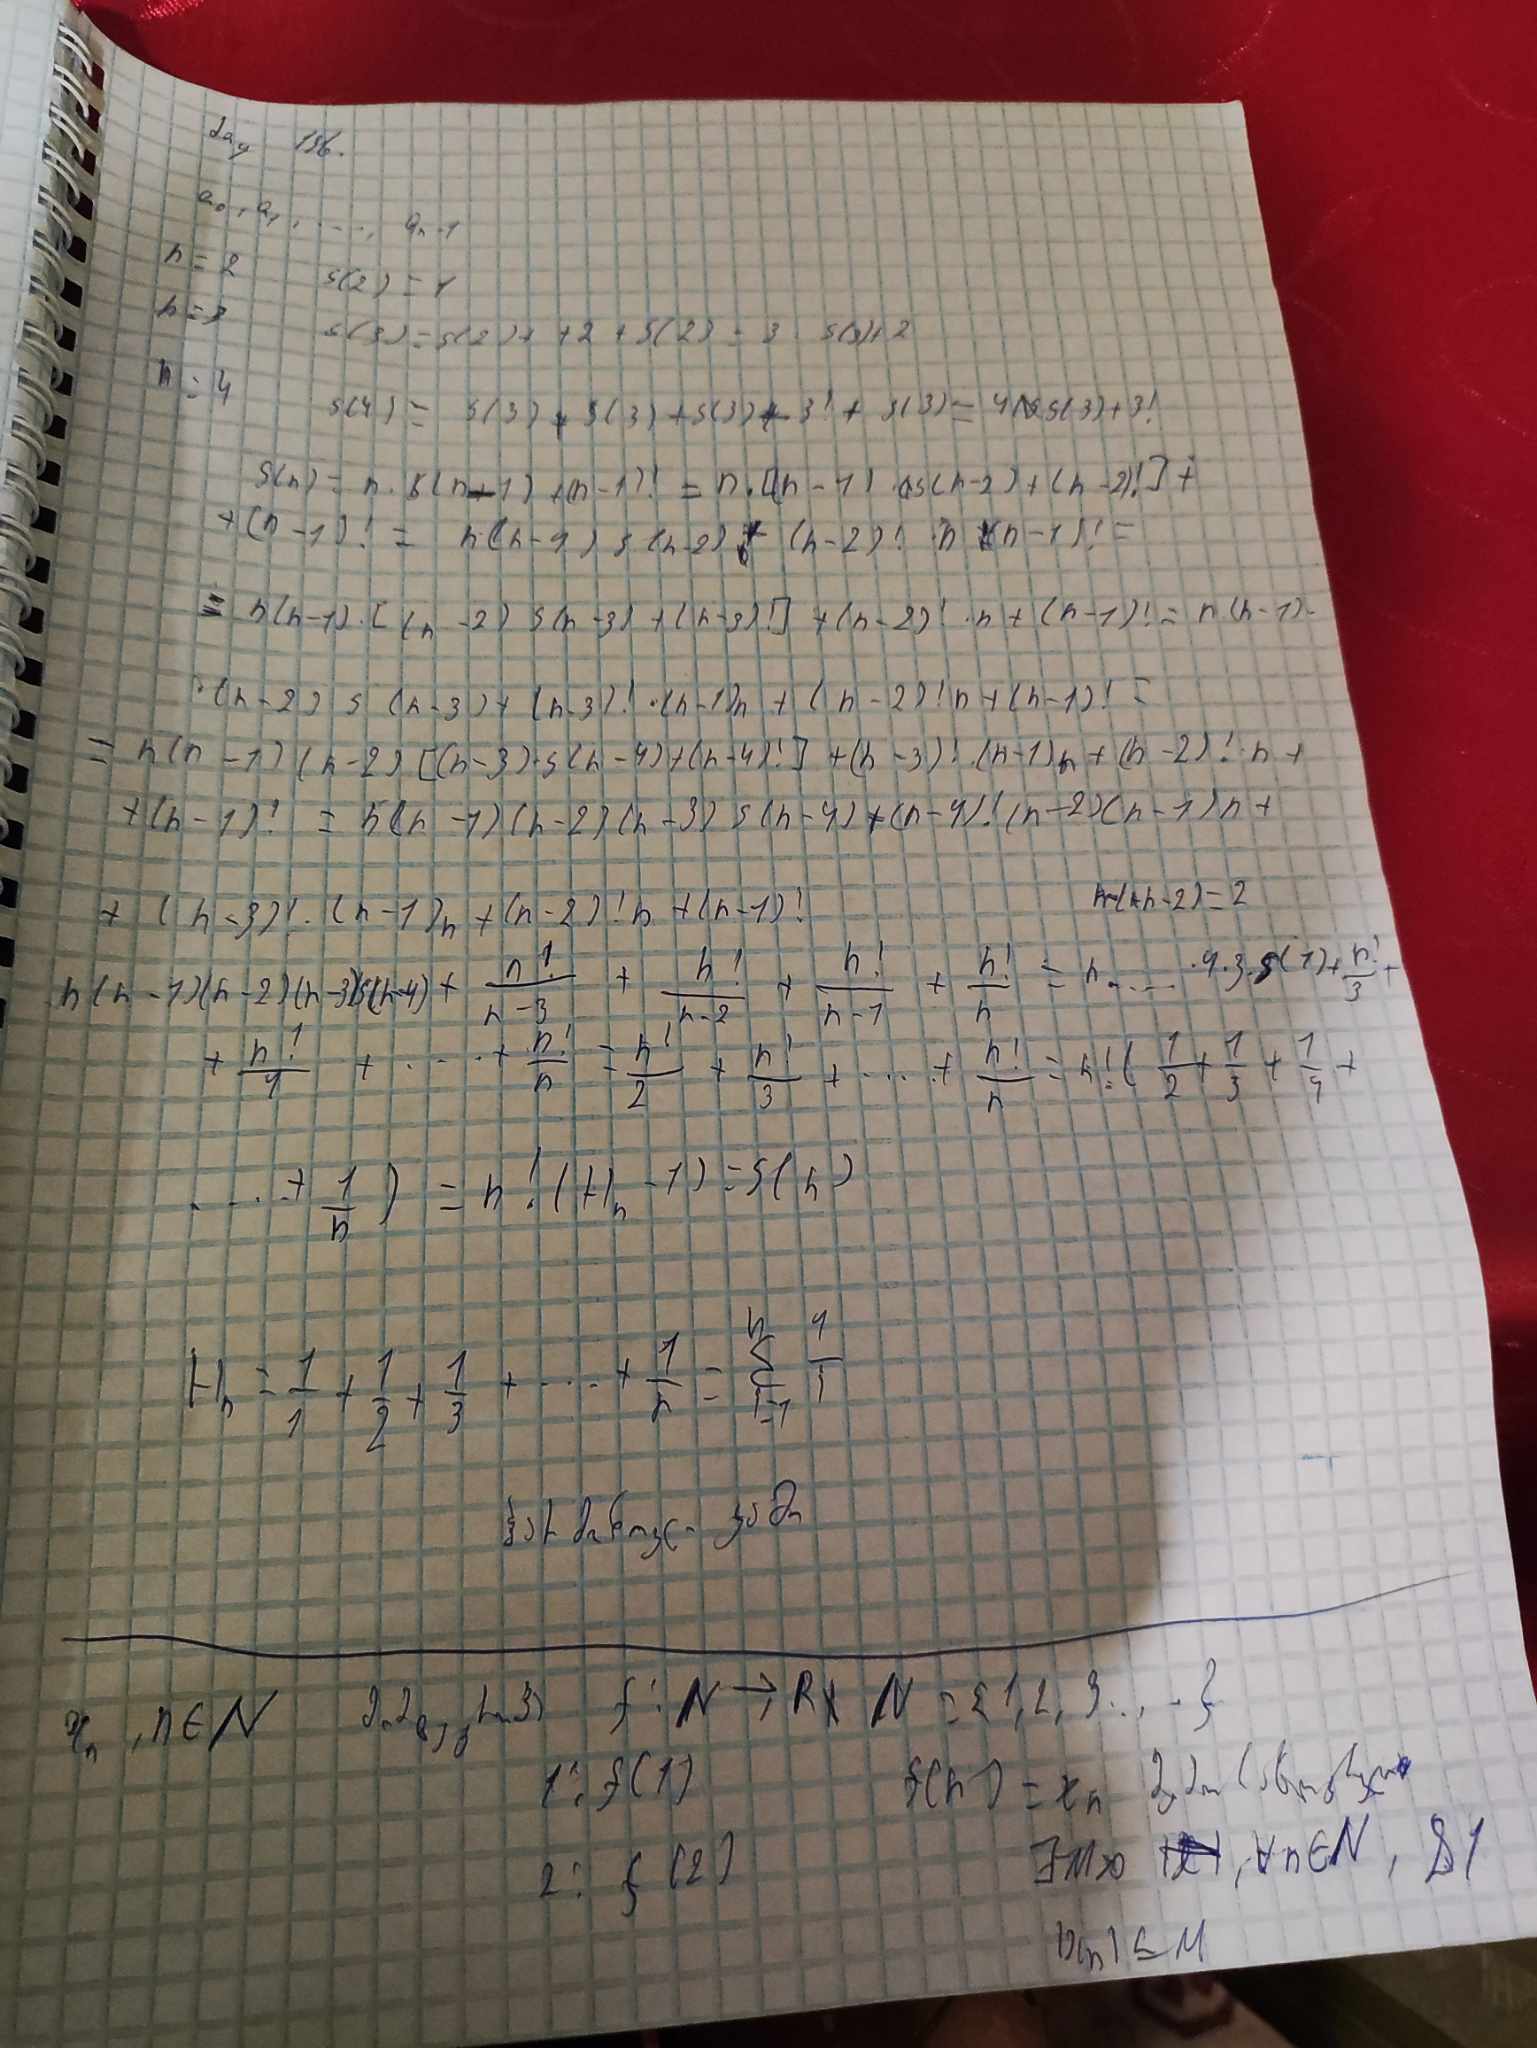 136.
a₀, a₁, ...., aₙ₋₁
n = 2 s(2) = 1
n = 3 s(3) = s(2) + + 2 + s(2) = 3 · s(3) + 2
n = 4 s(4) = s(3) + s(3) + s(3) + 3! + s(3) = 4 s(3) + 3!
s(n) = n · s(n-1) + (n-1)! = n · [(n-1) s(n-2) + (n-2)!] +
+ (n-1)! = n(n-1) s(n-2) + (n-2)! · n + (n-1)! =
= n(n-1) · [(n-2) s(n-3) + (n-3)!] + (n-2)! · n + (n-1)! = n(n-1) ·
· (n-2) s (n-3) + (n-3)! · (n-1)n + (n-2)! n + (n-1)! =
= n(n-1)(n-2) [(n-3) · s(n-4) + (n-4)!] + (n-3)! · (n-1)n + (n-2)! · n +
+ (n-1)! = n(n-1)(n-2)(n-3) s(n-4) + (n-4)! (n-2)(n-1)n +
+ (n-3)! · (n-1)n + (n-2)! n + (n-1)!
n(n-1)(n-2)(n-3)s(n-4) + n!/(n-3) + n!/(n-2) + n!/(n-1) + n!/n = n · .... · 4 · 3 · s(1) + n!/3 +
+ n!/4 + .... + n!/n = n!/2 + n!/3 + .... + n!/n = n! ( 1/2 + 1/3 + 1/4 +
.... + 1/n ) = n! (Hₙ - 1) = s(n)
Hₙ = 1/1 + 1/2 + 1/3 + .... + 1/n = Σⁿᵢ₌₁ 1/i
xₙ, n∈N f: N → R N = {1, 2, 3 ....}
1: f(1) f(n) = xₙ
2: f(2) ∃M>0 , ∀n∈N,
|xₙ| ≤ M